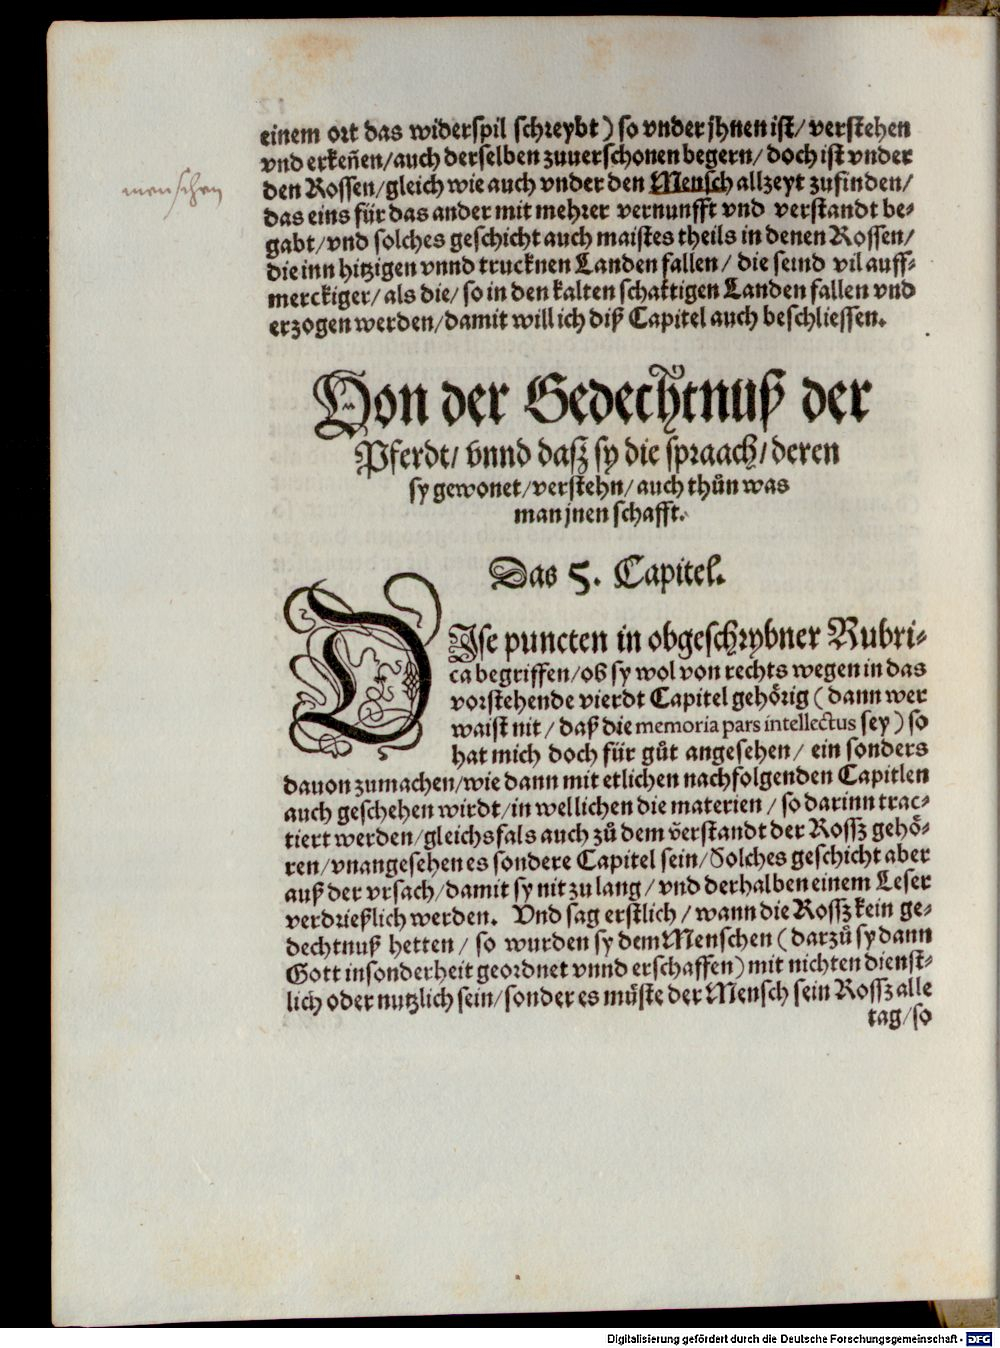 einem ort das widerspil schreybt) so vnder jhnen ist/ verstehen
vnd erkeñen/ auch derselben zuuerschonen begern/ doch ist vnder
menschen
den Rossen/ gleich wie auch vnder den Mensch allzeyt zufinden/
das eins für das ander mit mehrer vernunfft vnd verstandt be-
gabt/ vnd solches geschicht auch maistes theils in denen Rossen/
die inn hitzigen vnnd trucknen Landen fallen/ die seind vil auff-
merckiger/ als die/ so in den kalten schattigen Landen fallen vnd
erzogen werden/ damit will ich diß Capitel auch beschliessen.
Von der Gedechtnuß der
Pferdt/ vnnd dasz sy die spraach/ deren
sy gewonet/ verstehn/ auch thůn was
man jnen schafft.
Das 5. Capitel.
DIse puncten in obgeschrybner Rubri-
ca begriffen/ ob sy wol von rechts wegen in das
vorstehende vierdt Capitel gehörig (dann wer
waist nit/ daß die memoria pars intellectus sey) so
hat mich doch für gůt angesehen/ ein sonders
dauon zumachen/ wie dann mit etlichen nachfolgenden Capitlen
auch geschehen wirdt/ in wellichen die materien/ so darinn trac-
tiert werden/ gleichsfals auch zů dem v̄erstandt der Rossz gehö-
ren/ vnangesehen es sondere Capitel sein/ Solches geschicht aber
auß der vrsach/ damit sy nit zu lang/ vnd derhalben einem Leser
verdrießlich werden. Vnd sag erstlich/ wann die Rossz kein ge-
dechtnuß hetten/ so wurden sy dem Menschen (darzů sy dann
Gott insonderheit geordnet vnnd erschaffen) mit nichten dienst-
lich oder nutzlich sein/ sonder es müste der Mensch sein Rossz alle
tag/ so
Digitalisierung gefördert durch die Deutsche Forschungsgemeinschaft - DFG